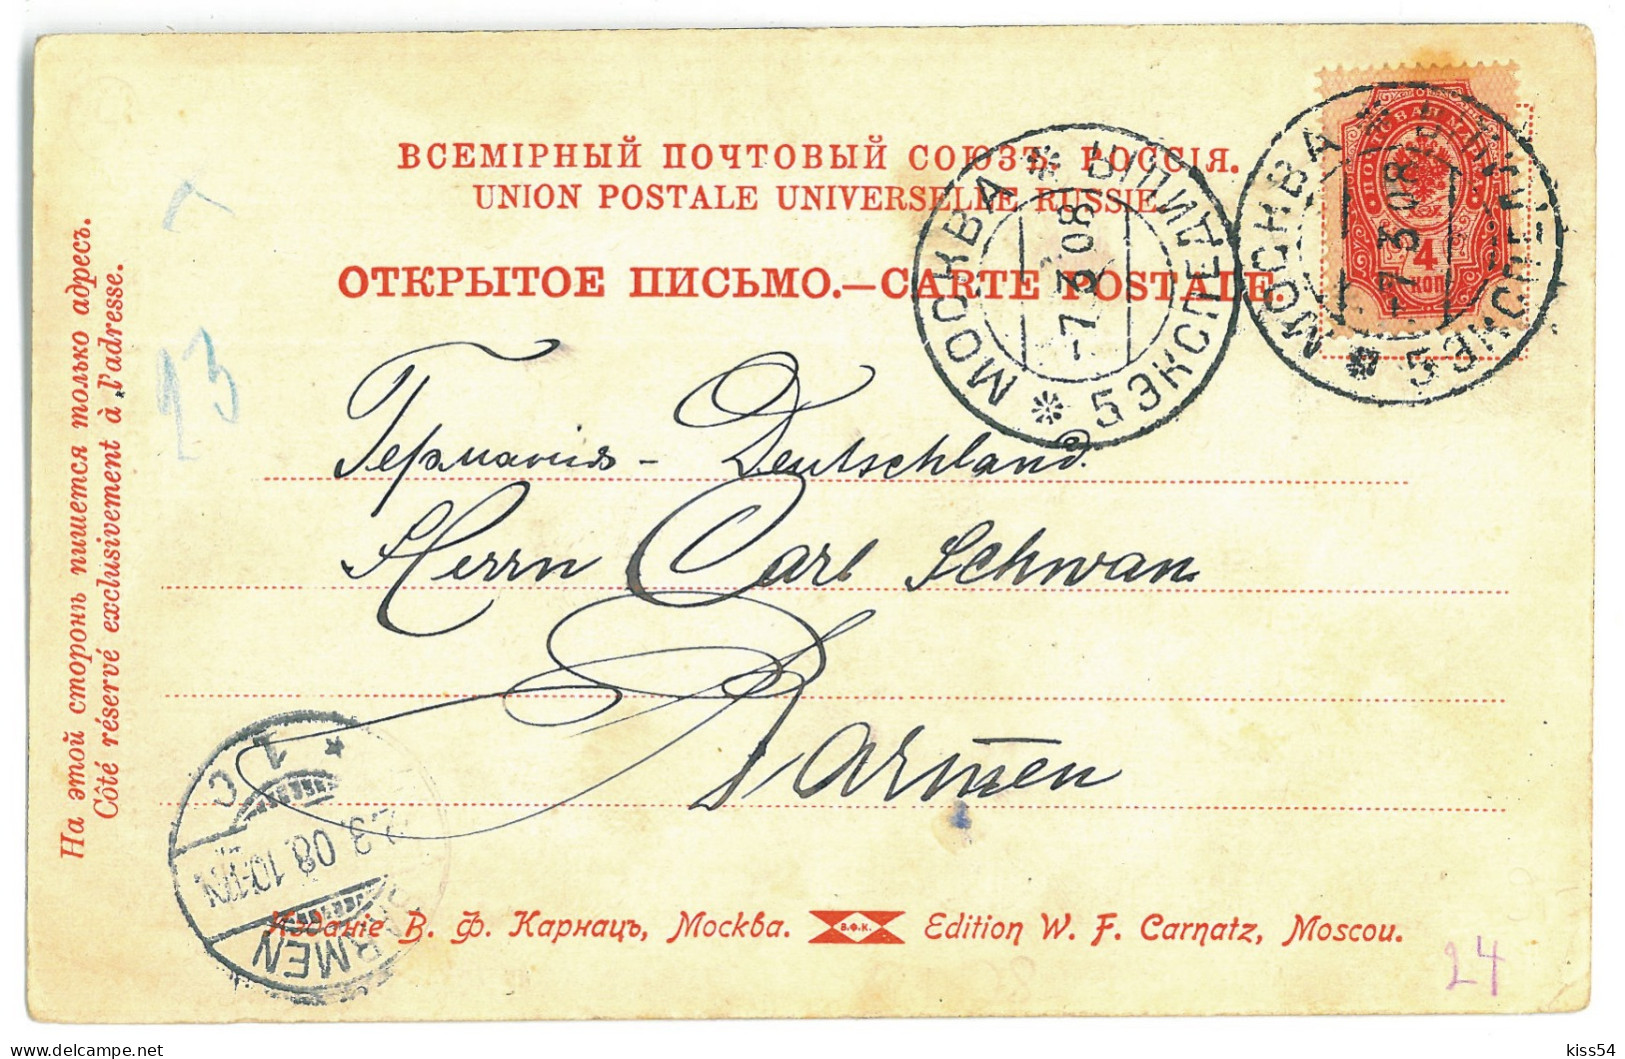 ВСЕМІРНЫЙ ПОЧТОВЫЙ СОЮЗЪ. РОССІЯ.
UNION POSTALE UNIVERSELLE RUSSIE.
ОТКРЫТОЕ ПИСЬМО.—CARTE POSTALE.
МОСКВА 5 ЭКСПЕДИЦІЯ
-7 3 08
МОСКВА 5 ЭКСПЕДИЦІЯ
-7 3 08
4
КОП
На этой сторонѣ пишется только адресъ.
Côté réservé exclusivement à l'adresse.
23
Германія - Deutschland.
Herrn Carl Schwan
Barmen
BARMEN
1 C
2.3.08.10-11N
Изданіе В. Ф. Карнацъ, Москва. В.Ф.К. Edition W. F. Carnatz, Moscou.
24
kiss54
delcampe.net